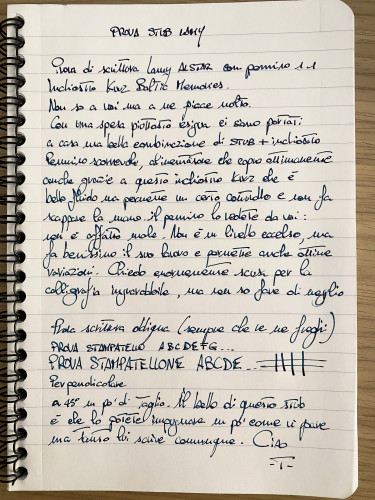 PROVA STUB LAMY
Prova di scrittura Lamy ALSTAR con pennino 1.1
Inchiostro Kwz Baltic Memories.
Non so a voi ma a me piace molto.
Con una spesa piuttosto esigua ci siamo portati
a casa una bella combinazione di STUB + inchiostro
Pennino scorrevole, di dimensione che copre ottimamente
anche grazie a questo inchiostro Kwz che è
bello fluido ma permette un certo controllo e non fa
scappare la mano. Il pennino lo vedete da voi:
non è affatto male. Non è un livello eccelso, ma
fa benissimo il suo lavoro e permette anche ottime
variazioni. Chiedo enormemente scusa per la
calligrafia inguardabile, ma non so fare di meglio
Prova scrittura obliqua (sempre che ve ne freghi)
PROVA STAMPATELLO ABCDEFG...
PROVA STAMPATELLONE ABCDE...
Perpendicolare
a 45° un po' di taglio. Il bello di questo stub
è che lo potete impugnare un po' come vi pare
ma tanto lui scrive comunque. Ciao
-T-